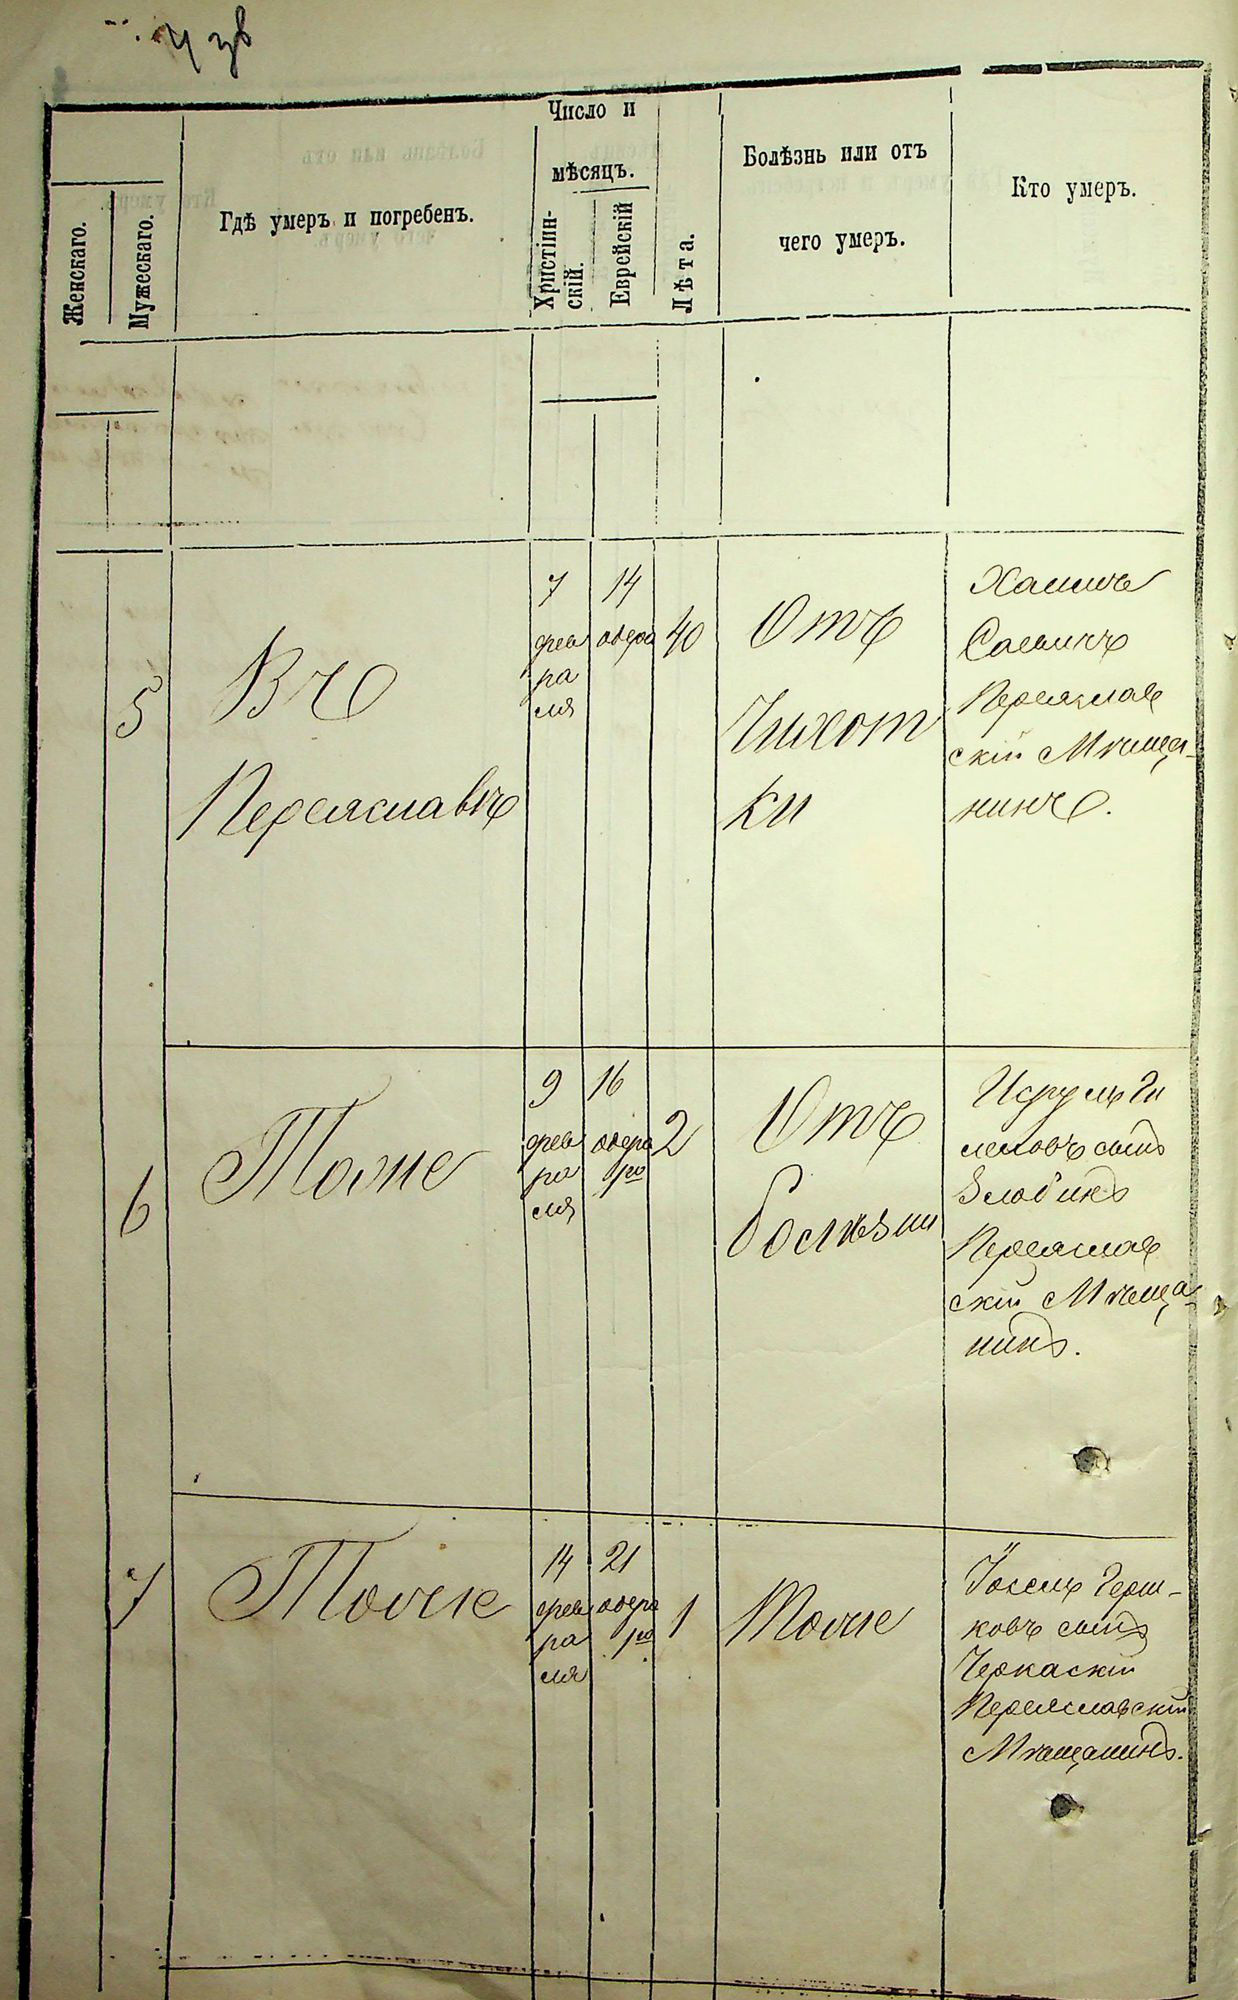 Число и
мѣсяцъ.
Женскаго.
Мужескаго.
Гдѣ умеръ и погребенъ.
Христіан-
скій.
Еврейскій
Лѣта.
Болѣзнь или отъ
чего умеръ.
Кто умеръ.
5
Въ
Переяславѣ
7
фев
ра
ля
14
адера
40
Отъ
Чихот
ки
Хаимъ
Переяслав
скій Мѣща-
нинъ.
6
Тоже
9
фев
ра
ля
16
адера
1го
2
Отъ
болѣзни
Исруль Ги
левовъ сынъ
Злобинъ
Переяслав
скій Мѣща-
нинъ.
7
Тоже
14
фев
ра
ля
21
адера
1го
1
Тоже
Іосель Герш-
ковъ сынъ
Черкаскій
Переяславскій
Мѣщанинъ.